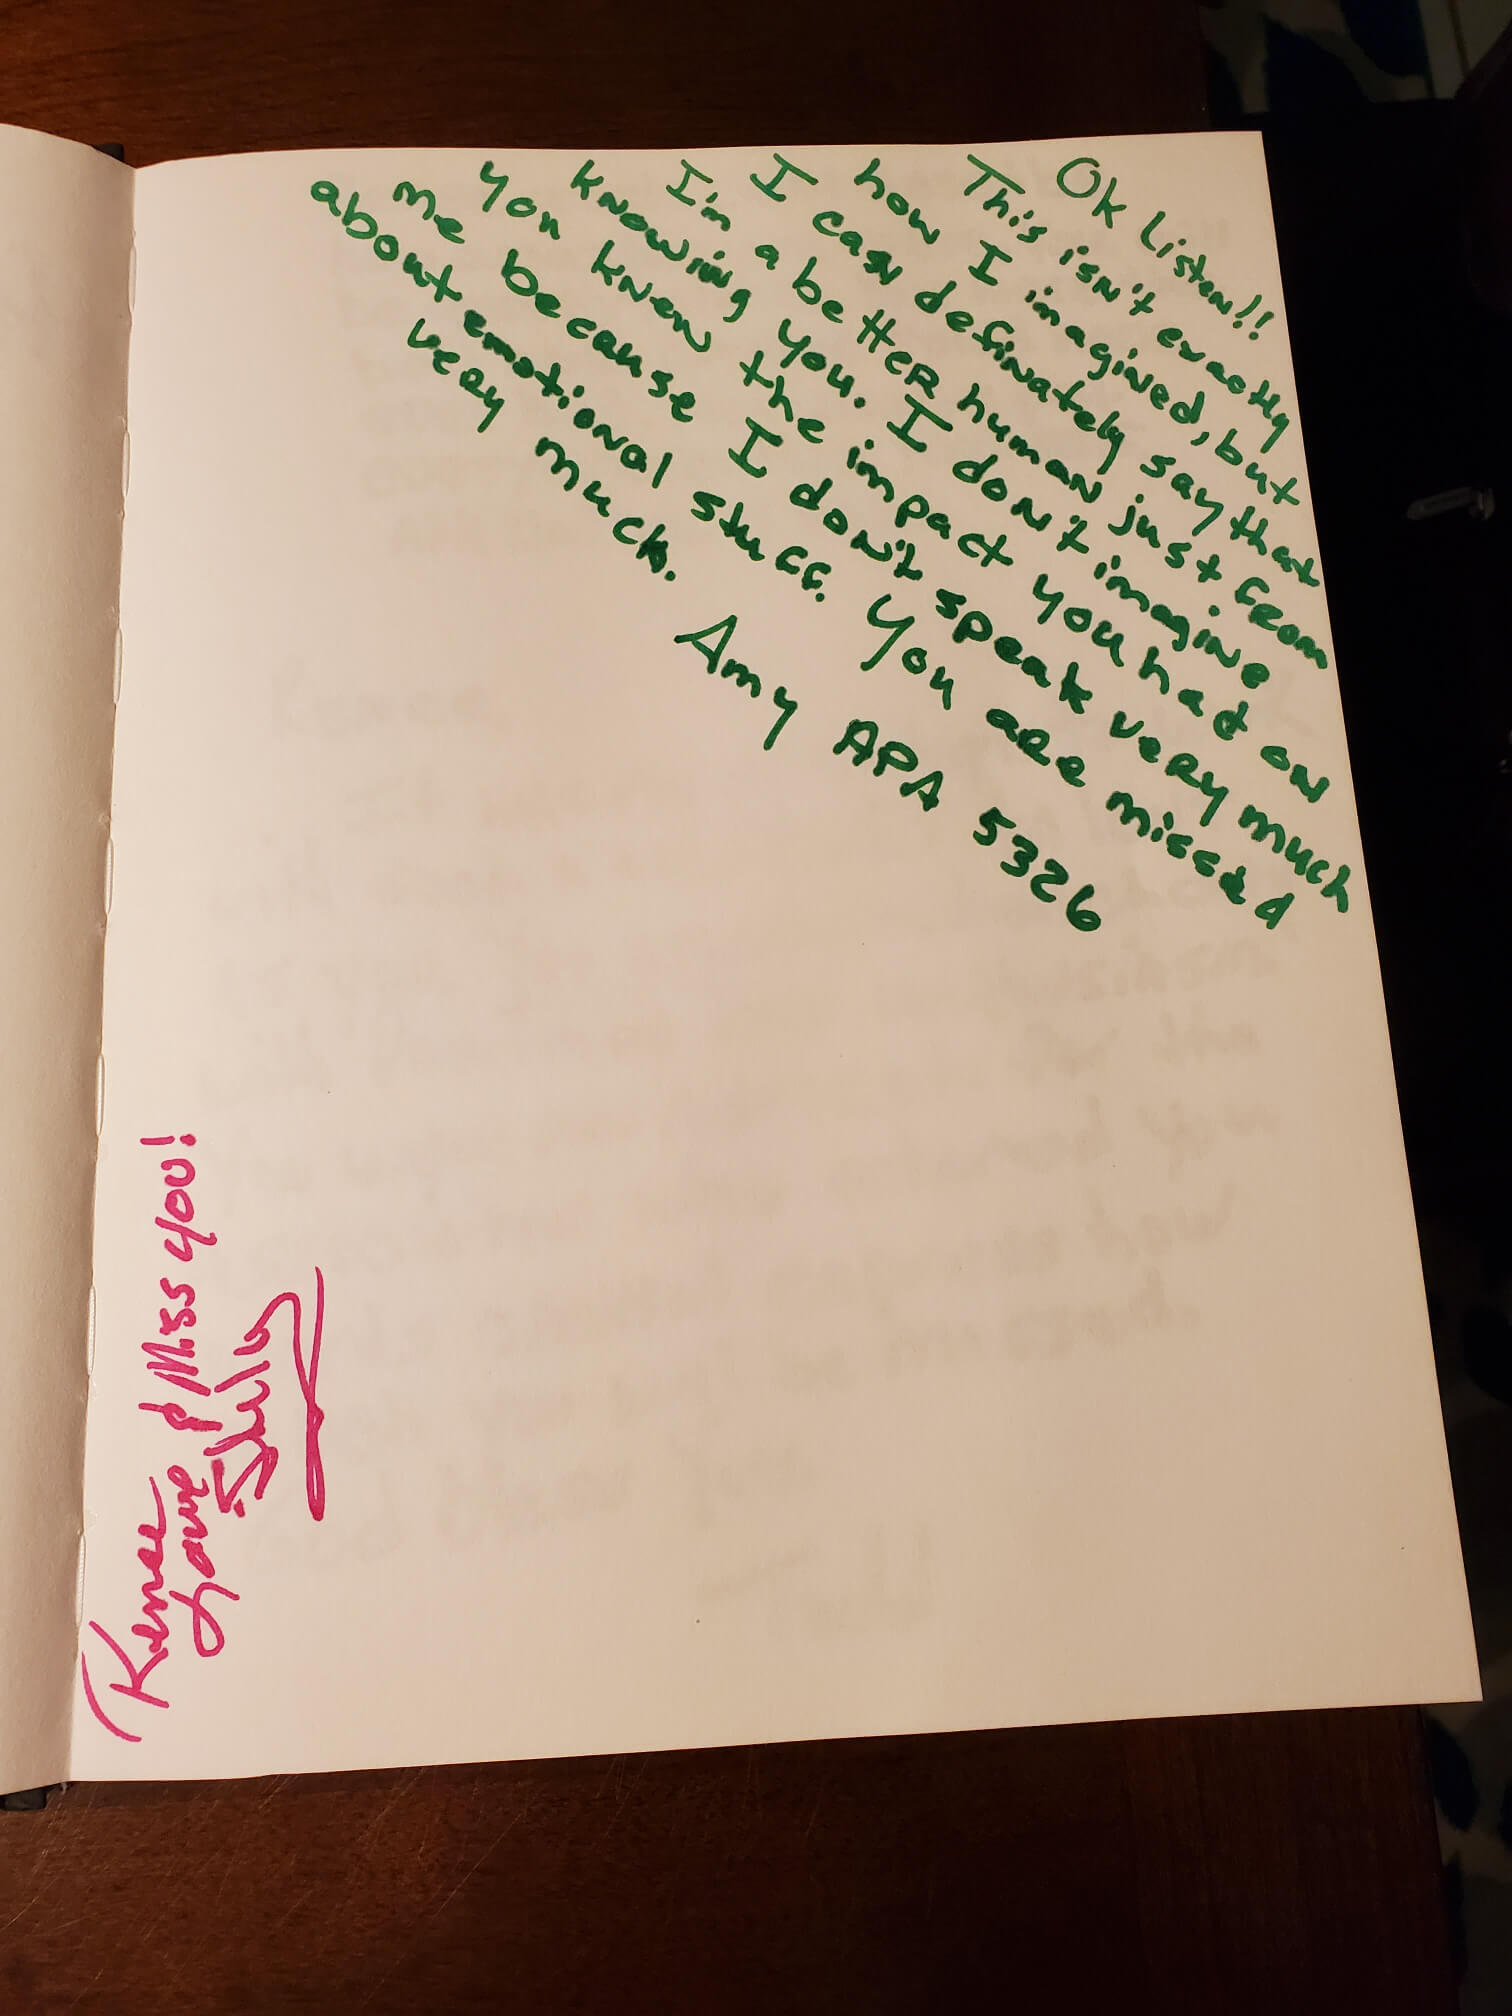 Ok Listen!!
This isn't exactly
how I imagined, but
I can definately say that
I'm a better human just from
knowing you. I don't imagine
you knew the impact you had on
me because I don't speak very much
about emotional stuff. You are missed
very much.
Amy APA 5326
Renee
Love & Miss you!